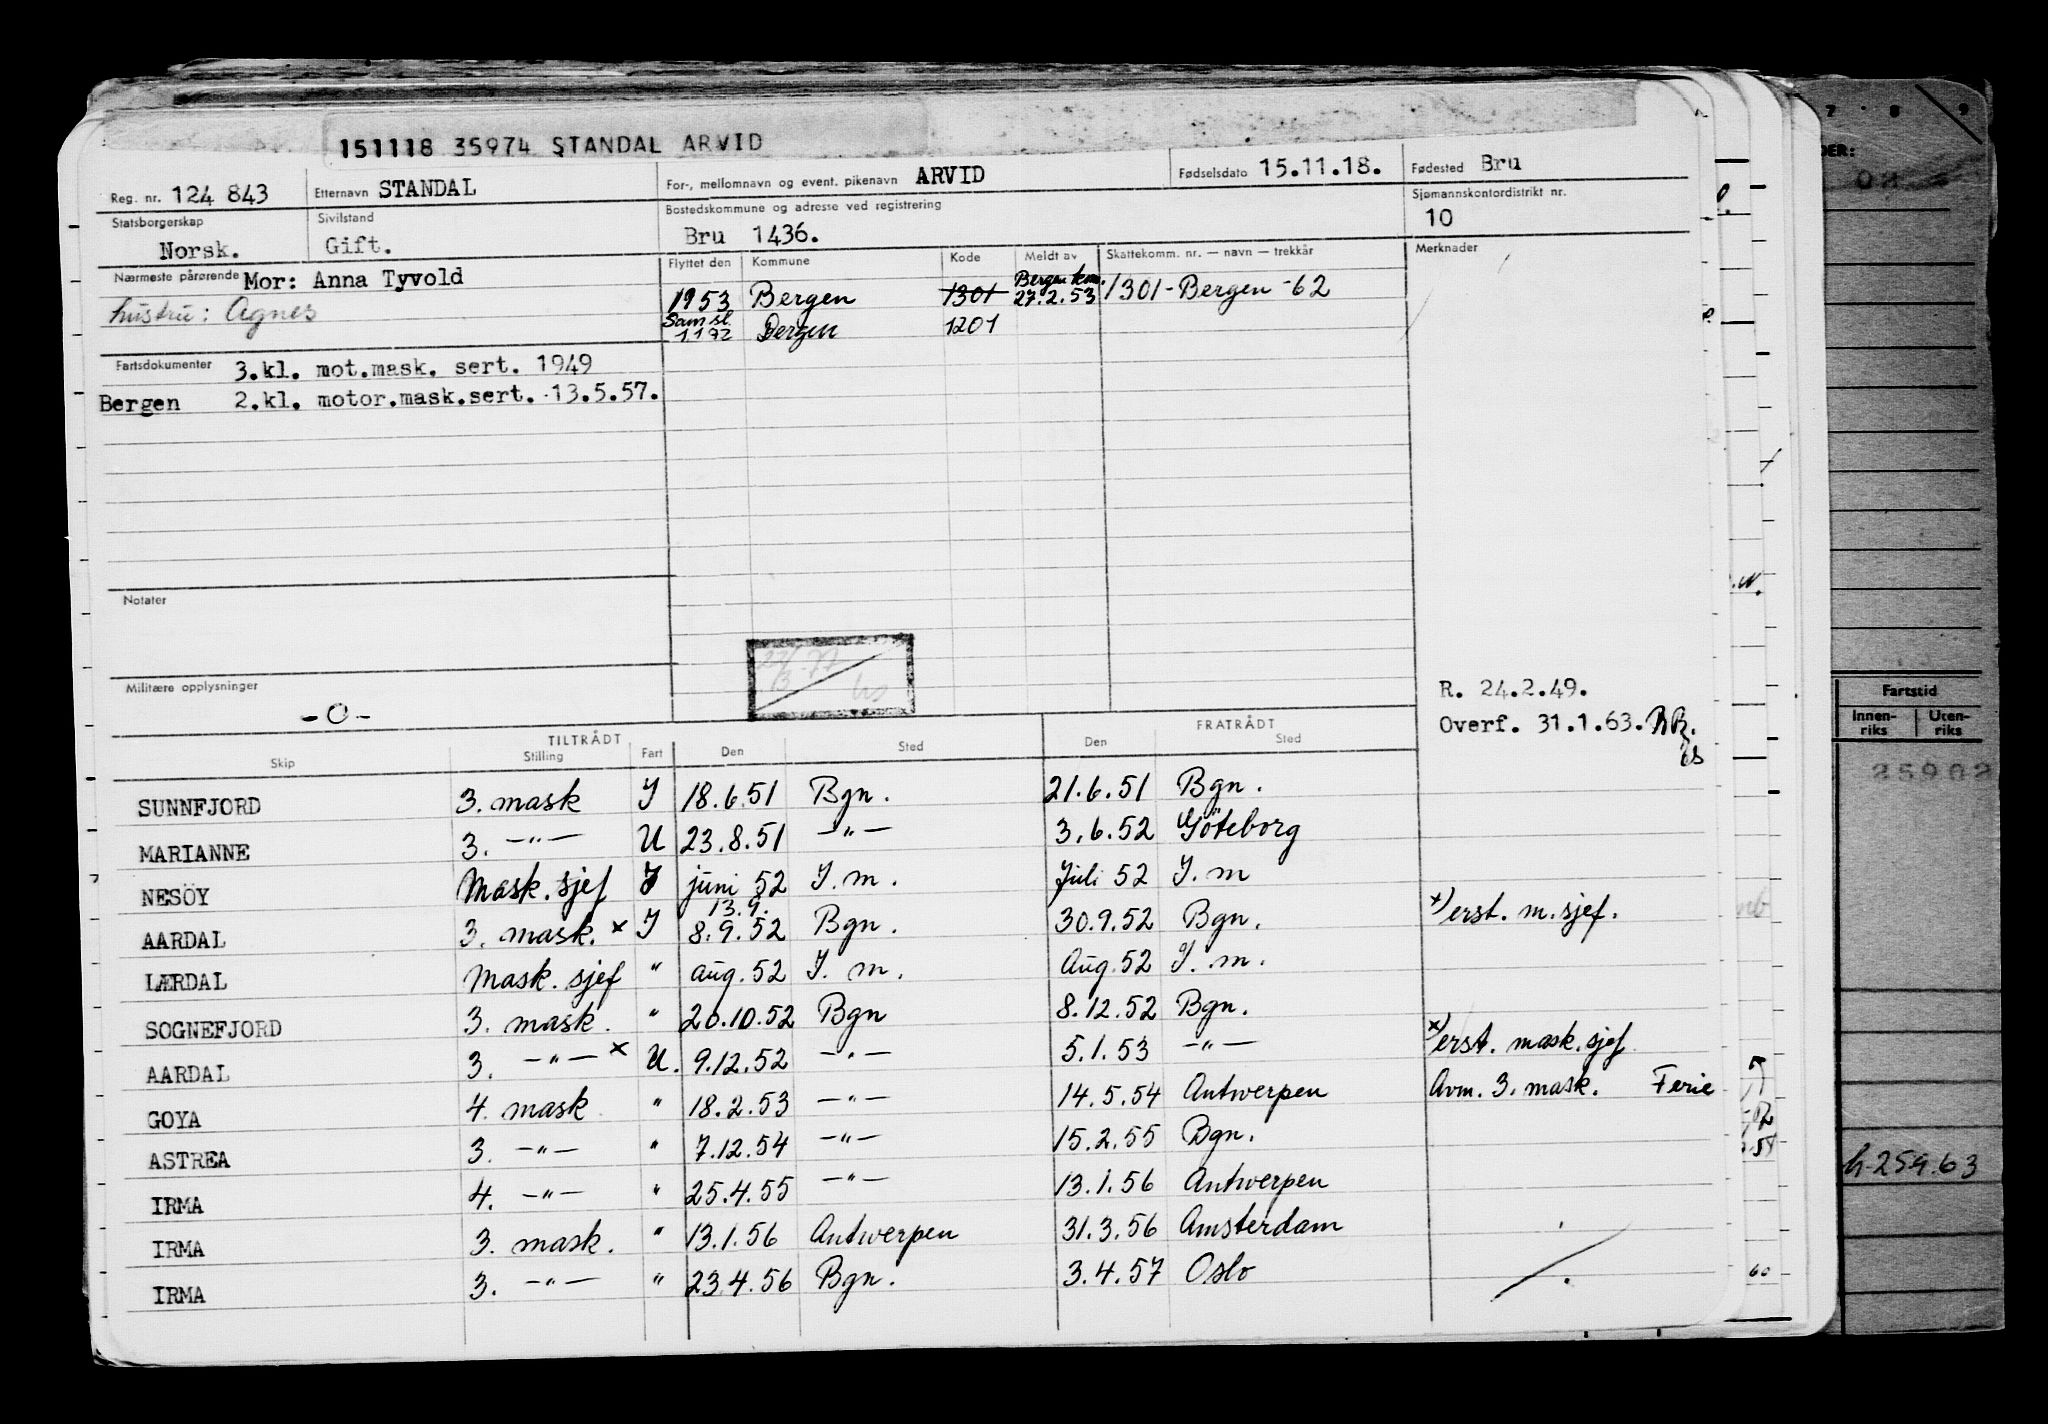 151118 35974 STANDAL ARVID
Reg. nr. 124 843 Etternavn STANDAL For-, mellomnavn og event. pikenavn ARVID Fødselsdato 15.11.18. Fødested Bru
Statsborgerskap Norsk. Sivilstand Gift. Bostedskommune og adresse ved registrering Bru 1436. Sjømannskontordistrikt nr. 10
Nærmeste pårørende Mor: Anna Tyvold
hustru: Agnes
Flyttet den Kommune Kode Meldt av Skattekomm. nr. — navn — trekkår Merknader
1953 Bergen 1301 Bergen kom. 27.2.53 1301-Bergen-62
Sam.sl. 1172 Bergen 1201
Fartsdokumenter 3.kl. mot.mask. sert. 1949
Bergen 2.kl. motor.mask.sert. 13.5.57.
Notater
Militære opplysninger
-O-
R. 24.2.49.
Overf. 31.1.63.
TILTRÅDT FRATRÅDT
Skip Stilling Fart Den Sted Den Sted
SUNNFJORD 3. mask I 18.6.51 Bgn. 21.6.51 Bgn.
MARIANNE 3. -"- U 23.8.51 -"- 3.6.52 Göteborg
NESÖY Mask. sjef I juni 52 I.m. Juli 52 I.m
AARDAL 3. mask. x I 13.9. 8.9.52 Bgn. 30.9.52 Bgn. x) erst. m. sjef.
LÆRDAL Mask. sjef " aug. 52 I.m. Aug. 52 I.m.
SOGNEFJORD 3. mask. " 20.10.52 Bgn 8.12.52 Bgn.
AARDAL 3. -"- x U. 9.12.52 -"- 5.1.53 -"- x) erst. mask. sjef
GOYA 4. mask " 18.2.53 -"- 14.5.54 Antwerpen Avm. 3. mask. Ferie
ASTREA 3. -"- " 7.12.54 -"- 15.2.55 Bgn.
IRMA 4. -"- " 25.4.55 -"- 13.1.56 Antwerpen
IRMA 3. mask. " 13.1.56 Antwerpen 31.3.56 Amsterdam
IRMA 3. -"- " 23.4.56 Bgn. 3.4.57 Oslo
7 8 9
Fartstid
Innen-riks Uten-riks
25902